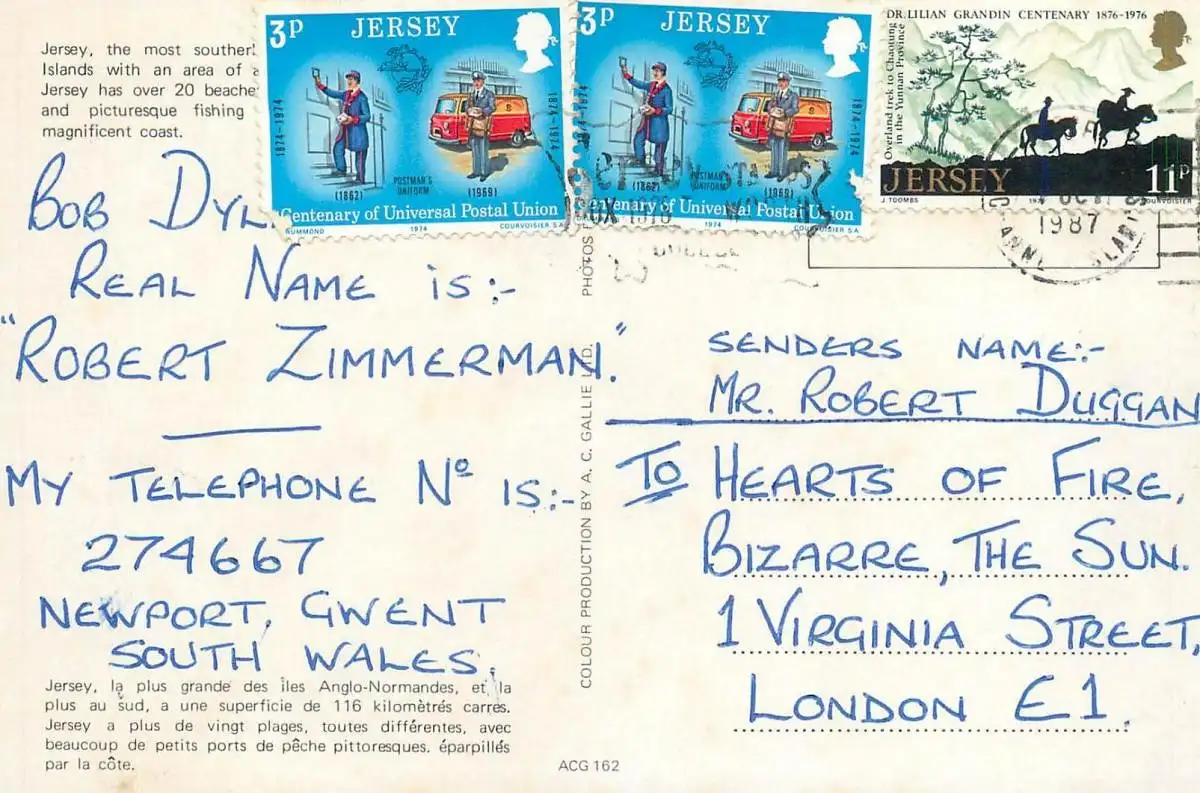 Jersey, the most souther
Islands with an area of
Jersey has over 20 beache
and picturesque fishing
magnificent coast.
3p JERSEY
1874-1974
(1862)
POSTMAN'S UNIFORM
(1969)
1874-1974
Centenary of Universal Postal Union
RUMMOND 1974 COURVOISIER S.A
3p JERSEY
1874-1974
(1862)
POSTMAN'S UNIFORM
(1969)
1874-1974
Centenary of Universal Postal Union
1974 COURVOISIER S.A
DR. LILIAN GRANDIN CENTENARY 1876-1976
Overland trek to Chaotung
in the Yunnan Province
JERSEY 11p
J. TOOMBS COURVOISIER
1987
BOB DYL
REAL NAME IS:-
"ROBERT ZIMMERMAN."
MY TELEPHONE Nº IS:-
274667
NEWPORT, GWENT
SOUTH WALES.
Jersey, la plus grande des îles Anglo-Normandes, et la
plus au sud, a une superficie de 116 kilomètrés carres.
Jersey a plus de vingt plages, toutes différentes, avec
beaucoup de petits ports de pêche pittoresques, éparpillés
par la côte.
COLOUR PRODUCTION BY A. C. GALLIE LTD. PHOTOS
ACG 162
SENDERS NAME:-
MR. ROBERT DUGGAN
TO HEARTS OF FIRE,
BIZARRE, THE SUN.
1 VIRGINIA STREET,
LONDON E1.